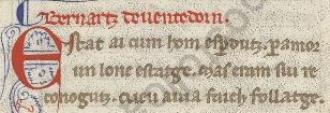 Bernartz deuentedorn.
Estat ai cum hom esperdutz. per amor
un lonc estatge. mas eram sui re
conogutz. cueu auia faich follatge.